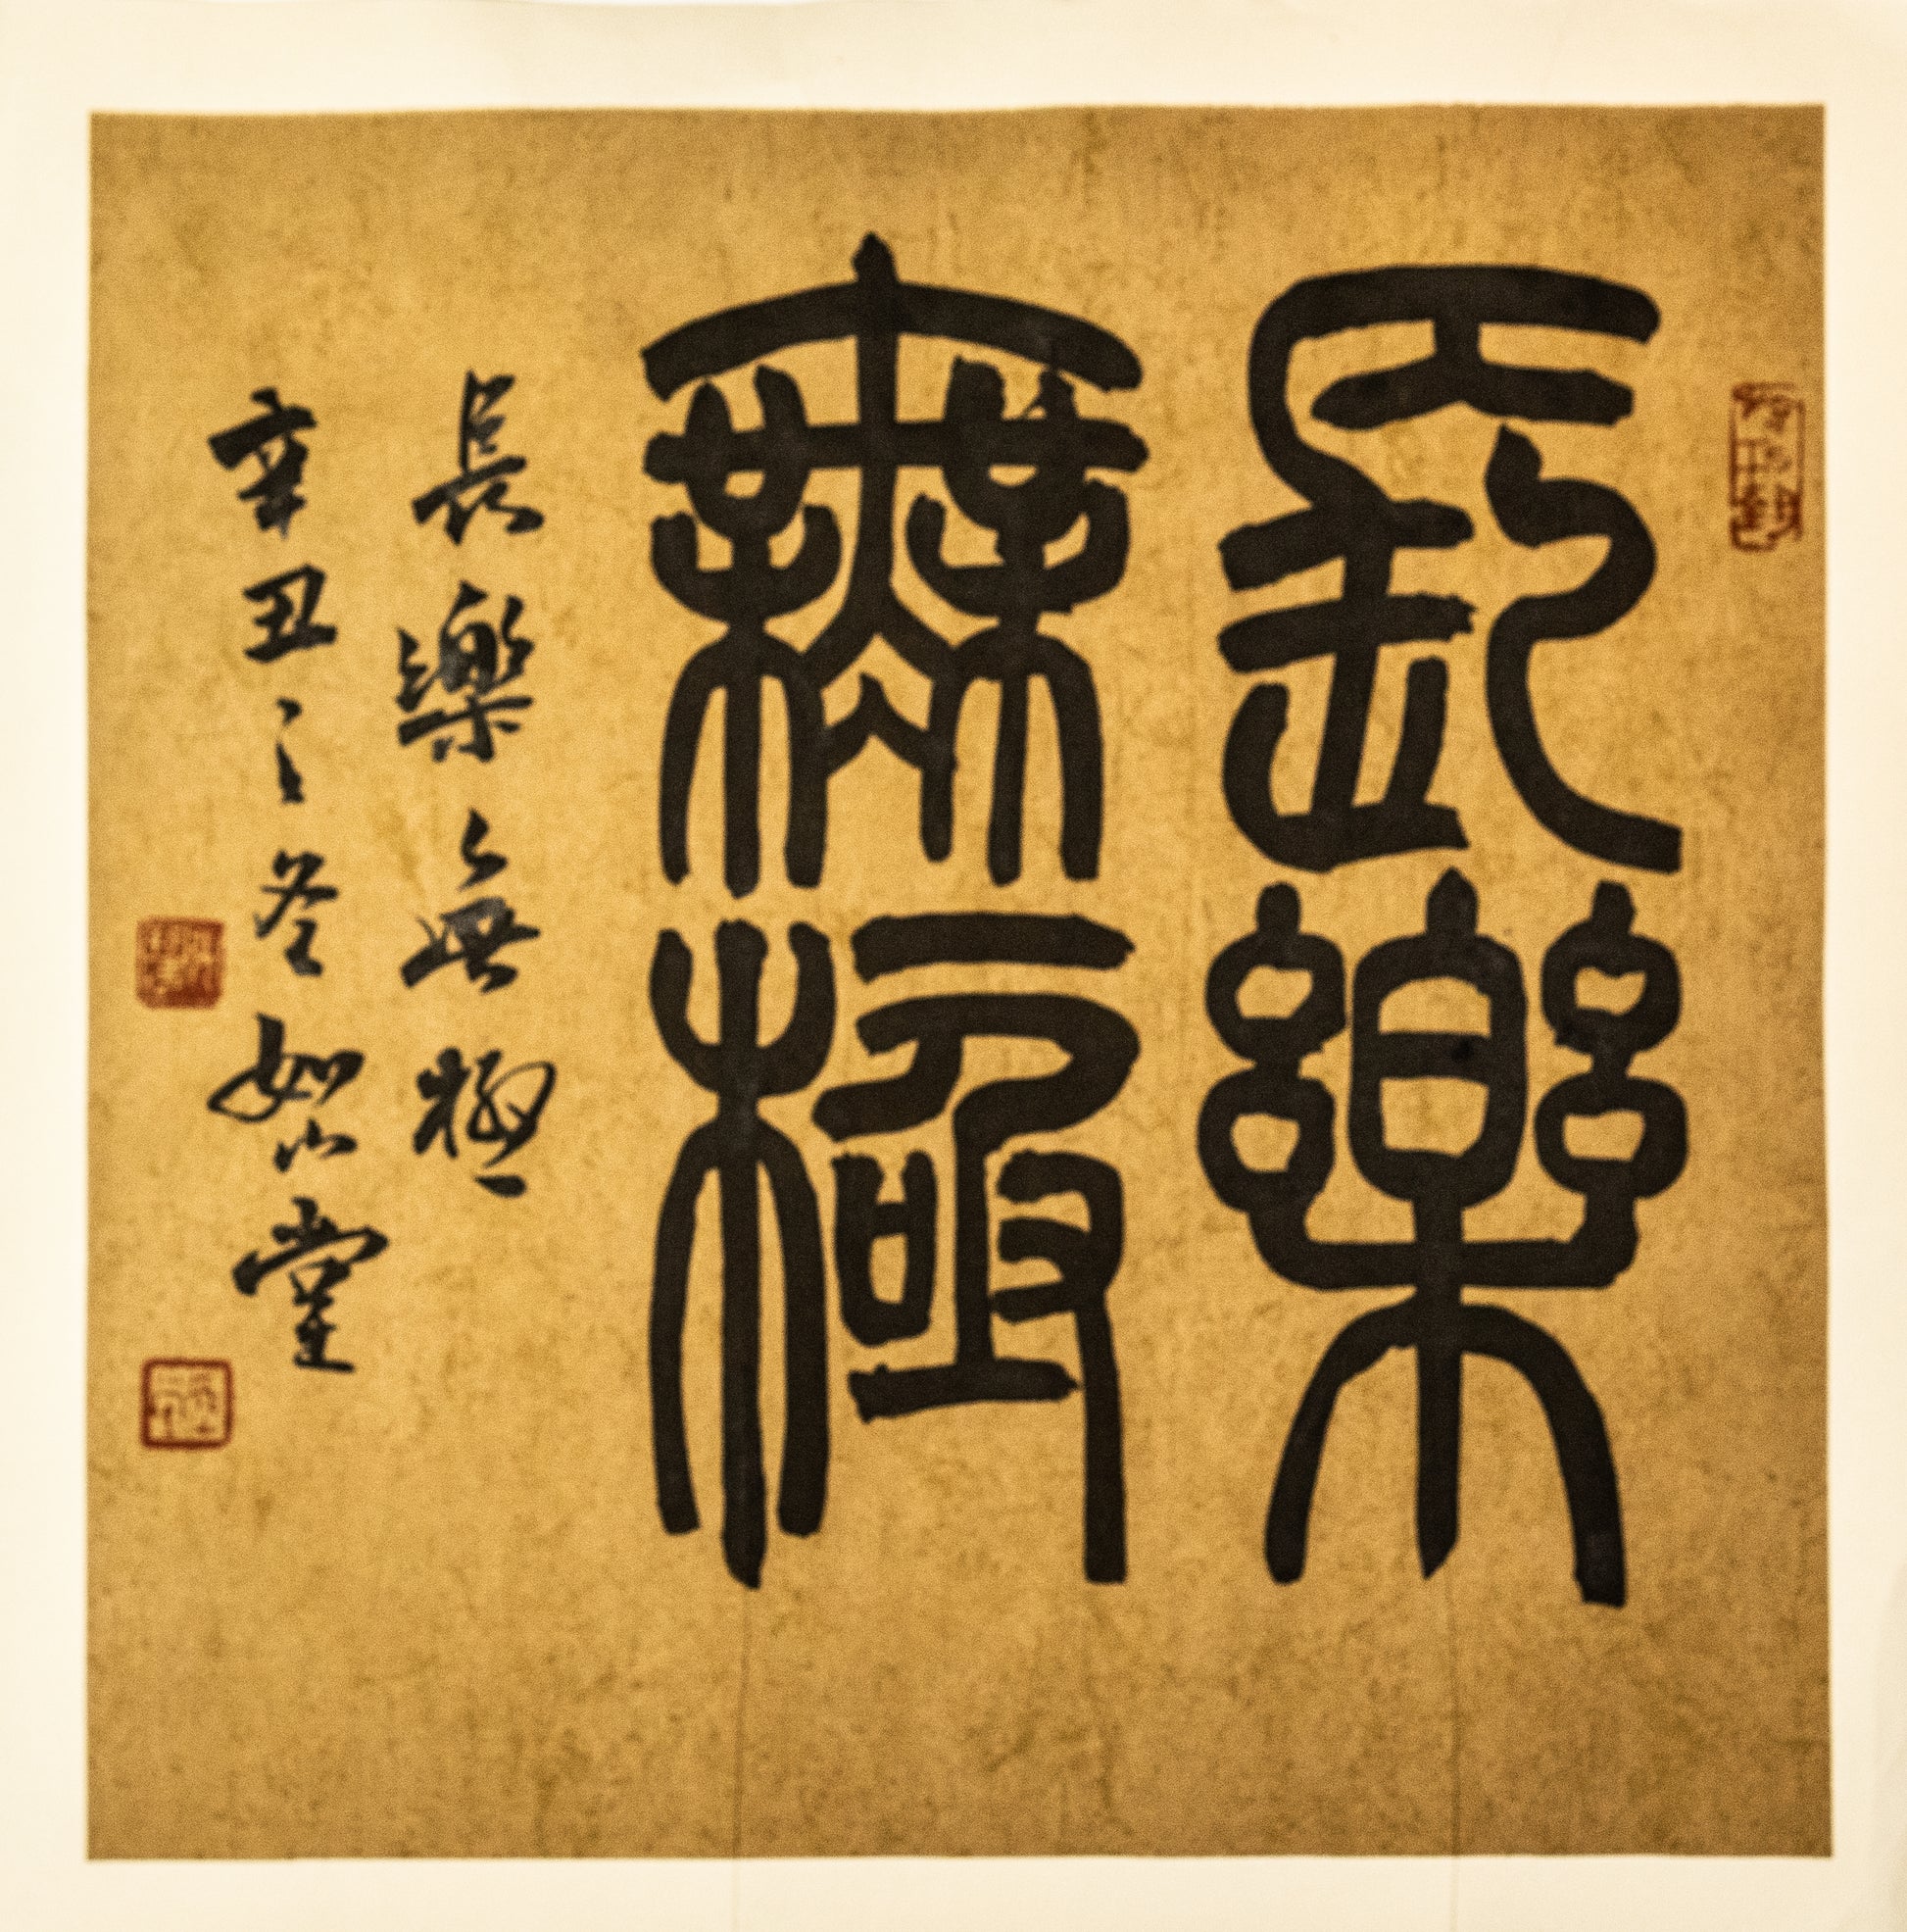 長樂
無極
長樂無極
辛丑之冬如山堂